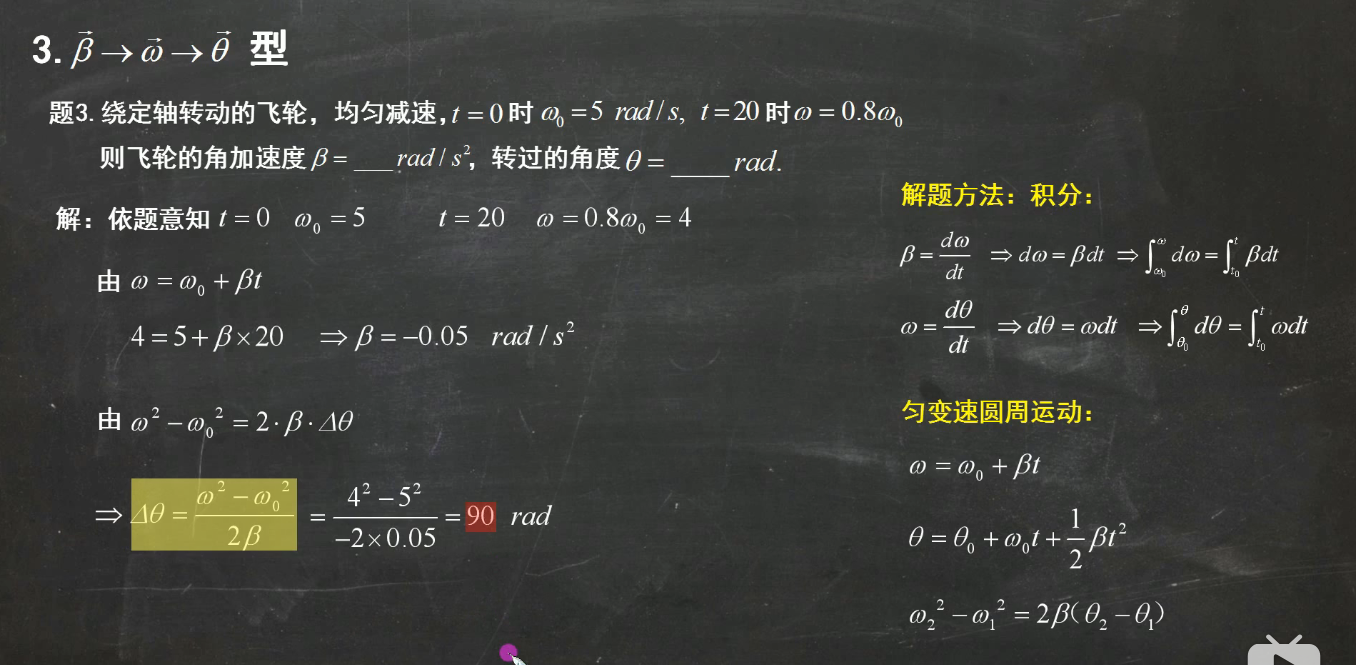 3. β⃗ → ω⃗ → θ⃗ 型
题3. 绕定轴转动的飞轮，均匀减速，t = 0 时 ω₀ = 5 rad / s, t = 20 时 ω = 0.8ω₀
则飞轮的角加速度 β = ___ rad / s², 转过的角度 θ = ____ rad.
解：依题意知 t = 0 ω₀ = 5 t = 20 ω = 0.8ω₀ = 4
由 ω = ω₀ + βt
4 = 5 + β × 20 ⇒ β = −0.05 rad / s²
由 ω² − ω₀² = 2 · β · Δθ
⇒ Δθ = (ω² − ω₀²) / 2β = (4² − 5²) / (−2 × 0.05) = 90 rad
解题方法：积分：
β = dω/dt ⇒ dω = βdt ⇒ ∫_{ω₀}^{ω} dω = ∫_{t₀}^{t} βdt
ω = dθ/dt ⇒ dθ = ωdt ⇒ ∫_{θ₀}^{θ} dθ = ∫_{t₀}^{t} ωdt
匀变速圆周运动：
ω = ω₀ + βt
θ = θ₀ + ω₀t + 1/2 βt²
ω₂² − ω₁² = 2β(θ₂ − θ₁)